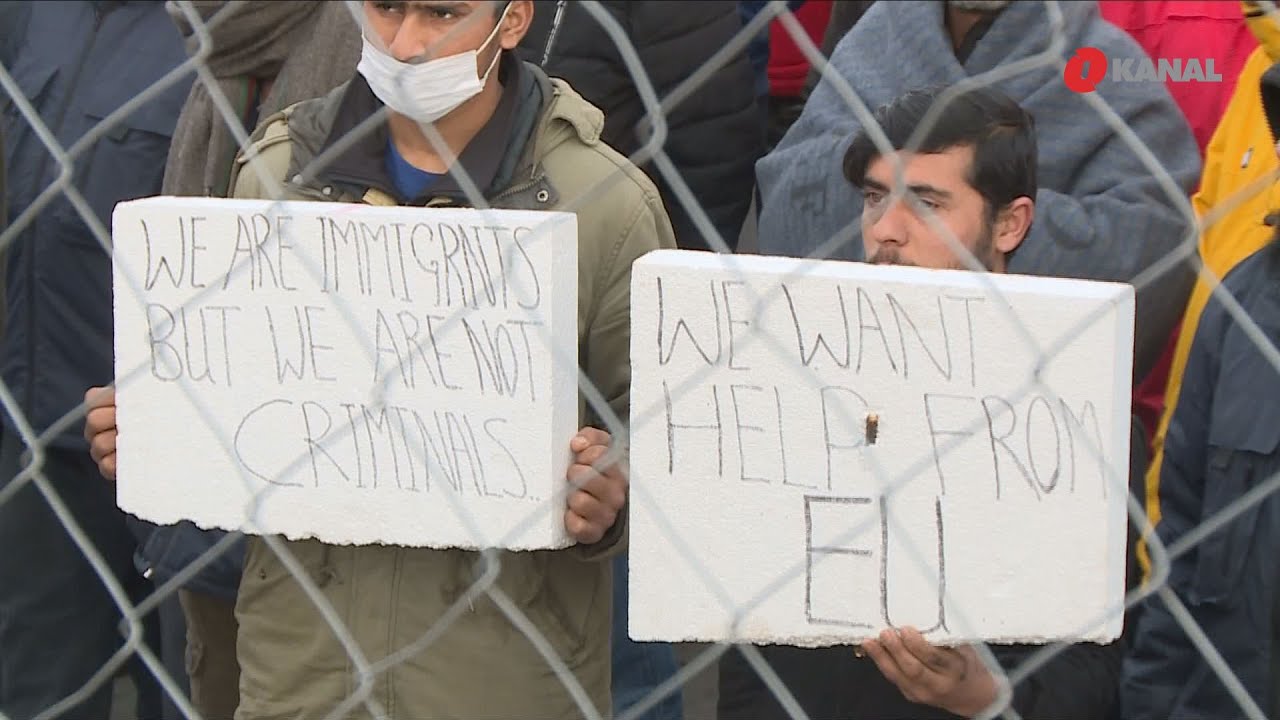 O KANAL
WE ARE IMMIGRNTS
BUT WE ARE NOT
CRIMINALS..
WE WANT
HELP FROM
EU